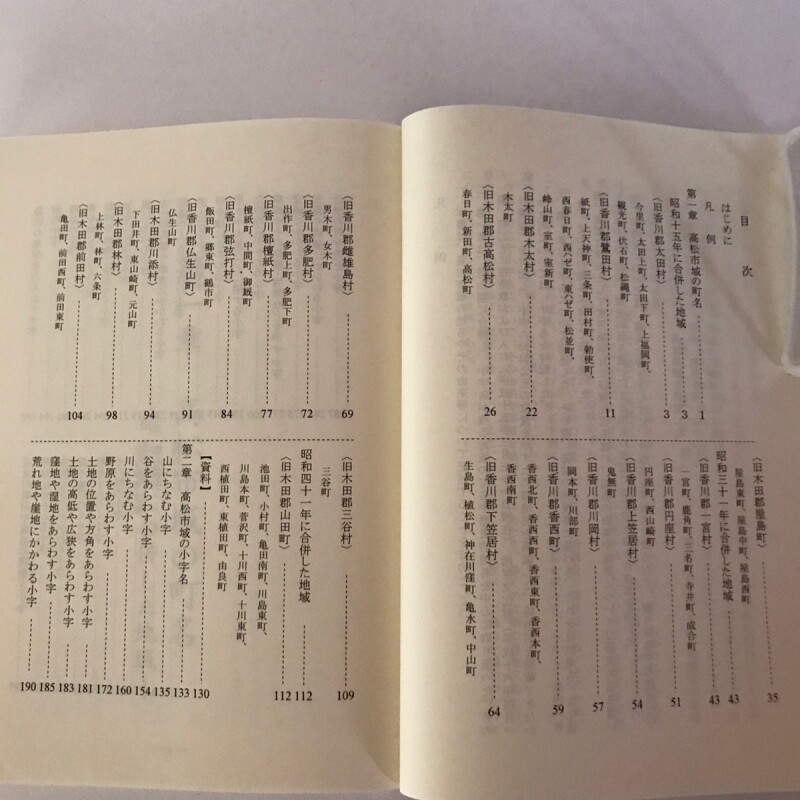 目次
はじめに
凡例
第一章 高松市域の町名 1
昭和十五年に合併した地域 3
〈旧香川郡太田村〉 3
今里町、太田上町、太田下町、上福岡町、
観光町、伏石町、松縄町
〈旧香川郡鷺田村〉 11
紙町、上天神町、三条町、田村町、勅使町、
西春日町、西ハゼ町、東ハゼ町、松並町、
峰山町、室町、室新町
〈旧木田郡木太村〉 22
木太町
〈旧木田郡古高松村〉 26
春日町、新田町、高松町
〈旧木田郡屋島町〉 35
屋島東町、屋島中町、屋島西町
昭和三十一年に合併した地域 43
〈旧香川郡一宮村〉 43
一宮町、鹿角町、三名町、寺井町、成合町
〈旧香川郡円座村〉 51
円座町、西山崎町
〈旧香川郡上笠居村〉 54
鬼無町
〈旧香川郡川岡村〉 57
岡本町、川部町
〈旧香川郡香西町〉 59
香西北町、香西西町、香西東町、香西本町、
香西南町
〈旧香川郡下笠居村〉 64
生島町、植松町、神在川窪町、亀水町、中山町
〈旧香川郡雌雄島村〉 69
男木町、女木町
〈旧香川郡多肥村〉 72
出作町、多肥上町、多肥下町
〈旧香川郡檀紙村〉 77
檀紙町、中間町、御厩町
〈旧香川郡弦打村〉 84
飯田町、郷東町、鶴市町
〈旧香川郡仏生山町〉 91
仏生山町
〈旧木田郡川添村〉 94
下田井町、東山崎町、元山町
〈旧木田郡林村〉 98
上林町、林町、六条町
〈旧木田郡前田村〉 104
亀田町、前田西町、前田東町
〈旧木田郡三谷村〉 109
三谷町
昭和四十一年に合併した地域 112
〈旧木田郡山田町〉 112
池田町、小村町、亀田南町、川島東町、
川島本町、菅沢町、十川西町、十川東町、
西植田町、東植田町、由良町
【資料】 130
第二章 高松市域の小字名 133
山にちなむ小字 135
谷をあらわす小字 154
川にちなむ小字 160
野原をあらわす小字 172
土地の位置や方角をあらわす小字 181
土地の高低や広狭をあらわす小字 183
窪地や湿地をあらわす小字 185
荒れ地や崖地にかかわる小字 190